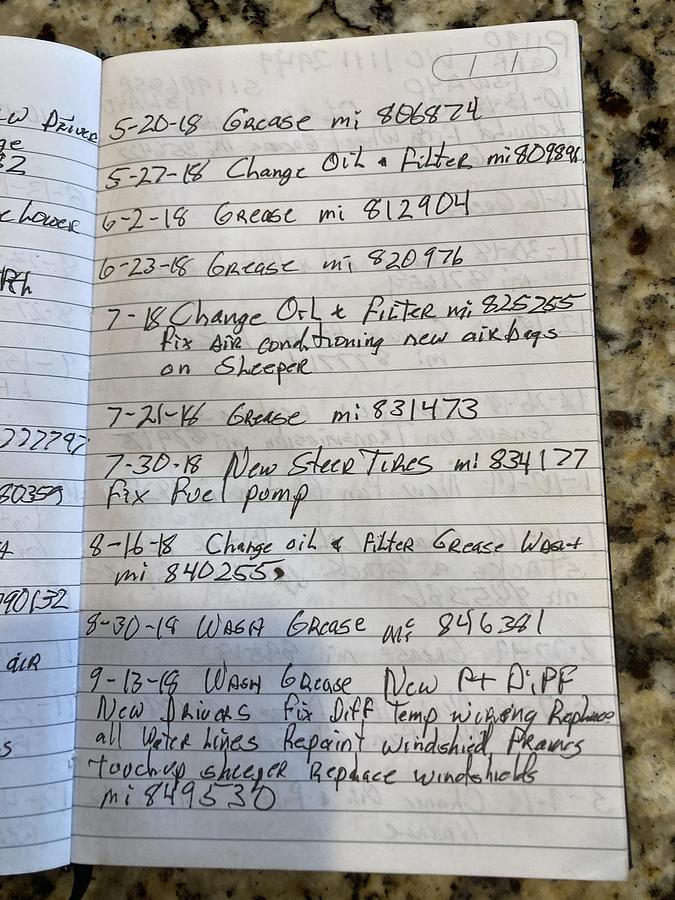 5-20-18 Grease mi 806874
5-27-18 Change Oil & Filter mi 809896
6-2-18 Grease mi 812904
6-23-18 Grease mi 820976
7-18 Change Oil & Filter mi 825255
Fix Air conditioning new air bags
on Sleeper
7-21-18 Grease mi 831473
7-30-18 New Steer Tires mi 834177
Fix Fuel pump
8-16-18 Change oil & Filter Grease Wash
mi 840255
8-30-18 Wash Grease mi 846381
9-13-18 Wash Grease New Rt Diff
New Drivers fix Diff Temp wiring Replace
all Water Lines Repaint windshied Frames
touchup sleeper Replace windshields
mi 849530
w Driver
Lower
222797
80359
790132
air